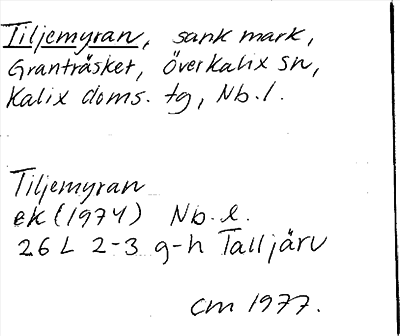 Tiljemyran, sank mark,
Granträsket, överkalix sn,
Kalix doms. tg, Nb.l.
Tiljemyran
ek (1974) Nb.l.
26 L 2-3 g-h Talljärv
cm 1977.